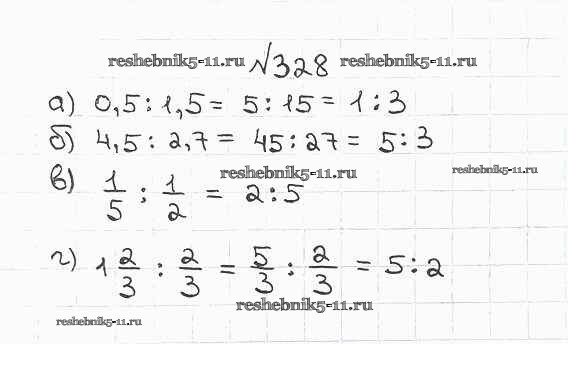 reshebnik5-11.ru №328 reshebnik5-11.ru
а) 0,5 : 1,5 = 5 : 15 = 1 : 3
б) 4,5 : 2,7 = 45 : 27 = 5 : 3
reshebnik5-11.ru reshebnik5-11.ru
в) 1/5 : 1/2 = 2 : 5
г) 1 2/3 : 2/3 = 5/3 : 2/3 = 5 : 2
reshebnik5-11.ru
reshebnik5-11.ru